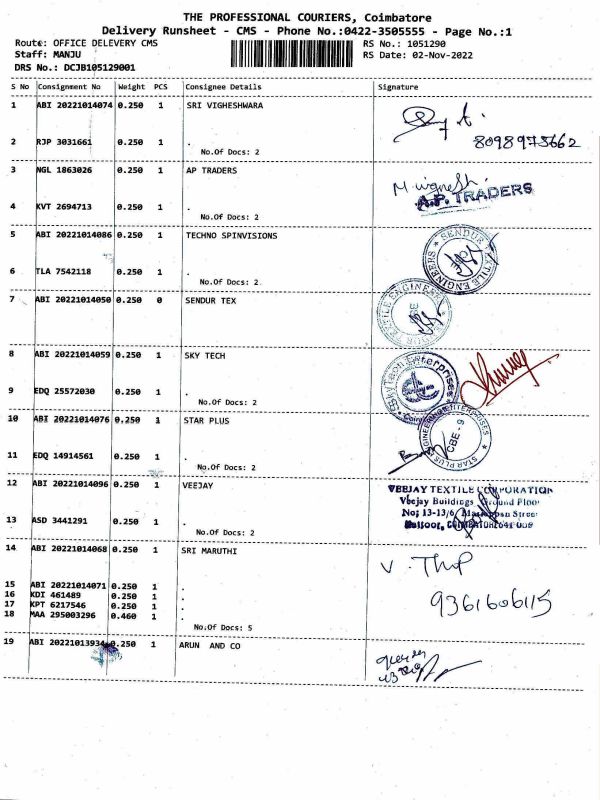 THE PROFESSIONAL COURIERS, Coimbatore
Delivery Runsheet - CMS - Phone No.:0422-3505555 - Page No.:1
Route: OFFICE DELEVERY CMS
Staff: MANJU
DRS No.: DCJB105129001
RS No.: 1051290
RS Date: 02-Nov-2022
S No Consignment No Weight PCS Consignee Details Signature
1 ABI 20221014074 0.250 1 SRI VIGHESHWARA
2 RJP 3031661 0.250 1 .
8098975662
No.Of Docs: 2
3 NGL 1863026 0.250 1 AP TRADERS
M.vignesh.
A.P. TRADERS
4 KVT 2694713 0.250 1 .
No.Of Docs: 2
5 ABI 20221014086 0.250 1 TECHNO SPINVISIONS
SENDUR TEXTILE ENGINEERS
6 TLA 7542118 0.250 1 .
No.Of Docs: 2
7 ABI 20221014050 0.250 0 SENDUR TEX
8 ABI 20221014059 0.250 1 SKY TECH
Enterprises
9 EDQ 25572030 0.250 1 .
No.Of Docs: 2
10 ABI 20221014076 0.250 1 STAR PLUS
STAR PLUS ENGINEERING ENTERPRISES
CBE - 9
11 EDQ 14914561 0.250 1 .
No.Of Docs: 2
12 ABI 20221014096 0.250 1 VEEJAY
VEEJAY TEXTILE CORPORATION
Veejay Buildings Ground Floor
No; 13-13/6, Street
COIMBATORE
13 ASD 3441291 0.250 1 .
No.Of Docs: 2
14 ABI 20221014068 0.250 1 SRI MARUTHI
15 ABI 20221014071 0.250 1 .
16 KDI 461489 0.250 1 .
17 KPT 6217546 0.250 1 .
18 MAA 295003296 0.460 1 .
9361606115
No.Of Docs: 5
19 ABI 2022101393 0.250 1 ARUN AND CO